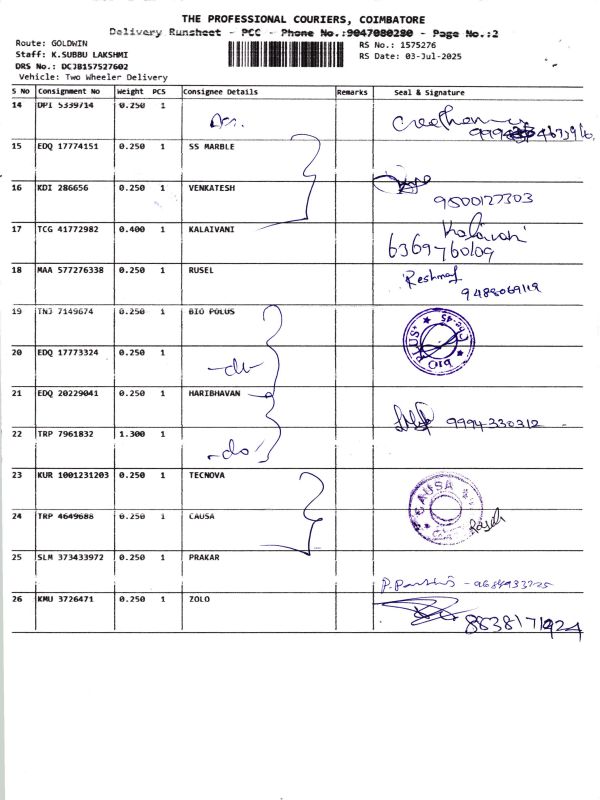 THE PROFESSIONAL COURIERS, COIMBATORE
Delivery Runsheet - PCC - Phone No.:9047080280 - Page No.:2
Route: GOLDWIN
Staff: K.SUBBU LAKSHMI
DRS No.: DCJB157527602
Vehicle: Two Wheeler Delivery
RS No.: 1575276
RS Date: 03-Jul-2025
S No Consignment No Weight PCS Consignee Details Remarks Seal & Signature
14 DPI 5339714 0.250 1
15 EDQ 17774151 0.250 1 SS MARBLE
16 KDI 286656 0.250 1 VENKATESH
9500127303
17 TCG 41772982 0.400 1 KALAIVANI
Kalaivani
6369760109
18 MAA 577276338 0.250 1 RUSEL
Reshma
9488069119
19 TNJ 7149674 0.250 1 BIO POLUS
BIO PLUS
20 EDQ 17773324 0.250 1
21 EDQ 20229041 0.250 1 HARIBHAVAN
9994330312
22 TRP 7961832 1.300 1
-do-
23 KUR 1001231203 0.250 1 TECNOVA
24 TRP 4649688 0.250 1 CAUSA
CAUSA
25 SLM 373433972 0.250 1 PRAKAR
26 KMU 3726471 0.250 1 ZOLO
8838171924